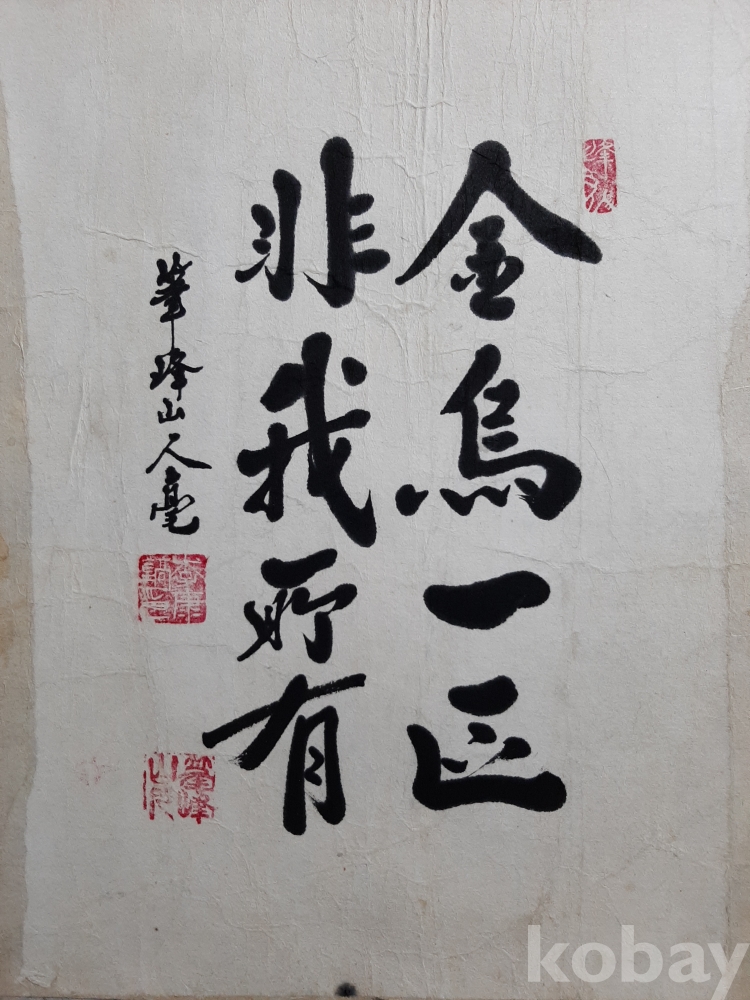 金烏一匹
非我所有
筆峰山人毫
kobay